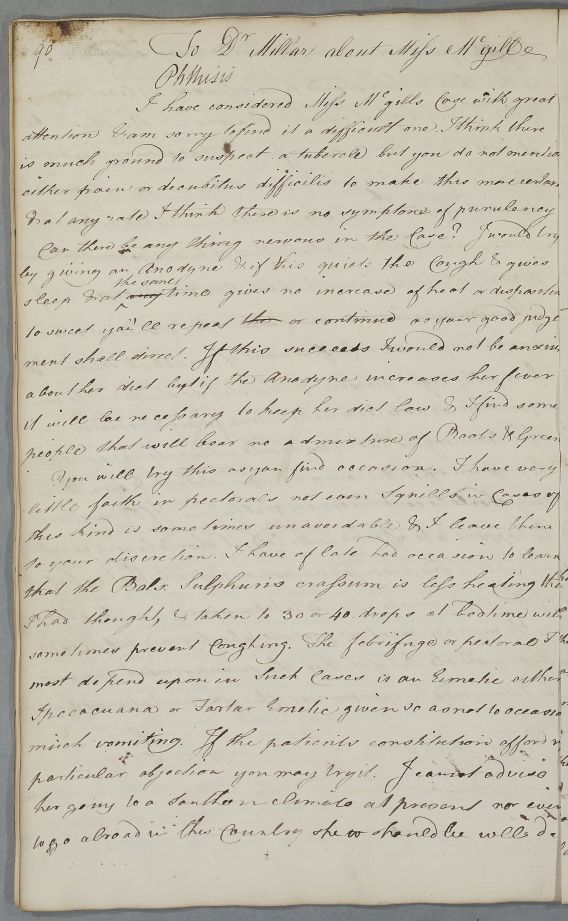 90 To Dr Millar about Miss Mcgill
Phthisis
I have considered Miss Mcgills Case with great
attention & am sorry to find it a difficult one. I think there
is much ground to suspect a tubercle but you do not mention
either pain or decubitus difficilis to make this more certain
& at any rate I think there is no symptom of purulency
Can there be any thing nervous in the Case? I would try
by giving an Anodyne & if this quiets the Cough & gives
sleep & at the same time gives no increase of heat or disposition
to sweat you'll repeat or continue as your good judge
ment shall direct. If this succeeds I would not be anxious
about her diet but if the Anodyne increases her fever
it will be necessary to keep her diet low & I find some
people that will bear no admixture of Roots & Green
You will try this as you find occasion. I have very
little faith in pectorals not even Squills in Cases of
this kind is sometimes unavoidable & I leave them
to your discretion. I have of late had occasion to learn
that the Bals: Sulphuris crassum is less heating than
I had thought, & taken to 30 or 40 drops at bedtime will
sometimes prevent Coughing. The febrifuge or pectoral I
most depend upon in such Cases is an Emetic either
Ipecacuana or Tartar Emetic given so as not to occasion
much vomiting. If the patients constitution affords no
particular objection you may try it. I cannot advise
her going to a Southern climate at present nor even
to go abroad in this Country she should be well de